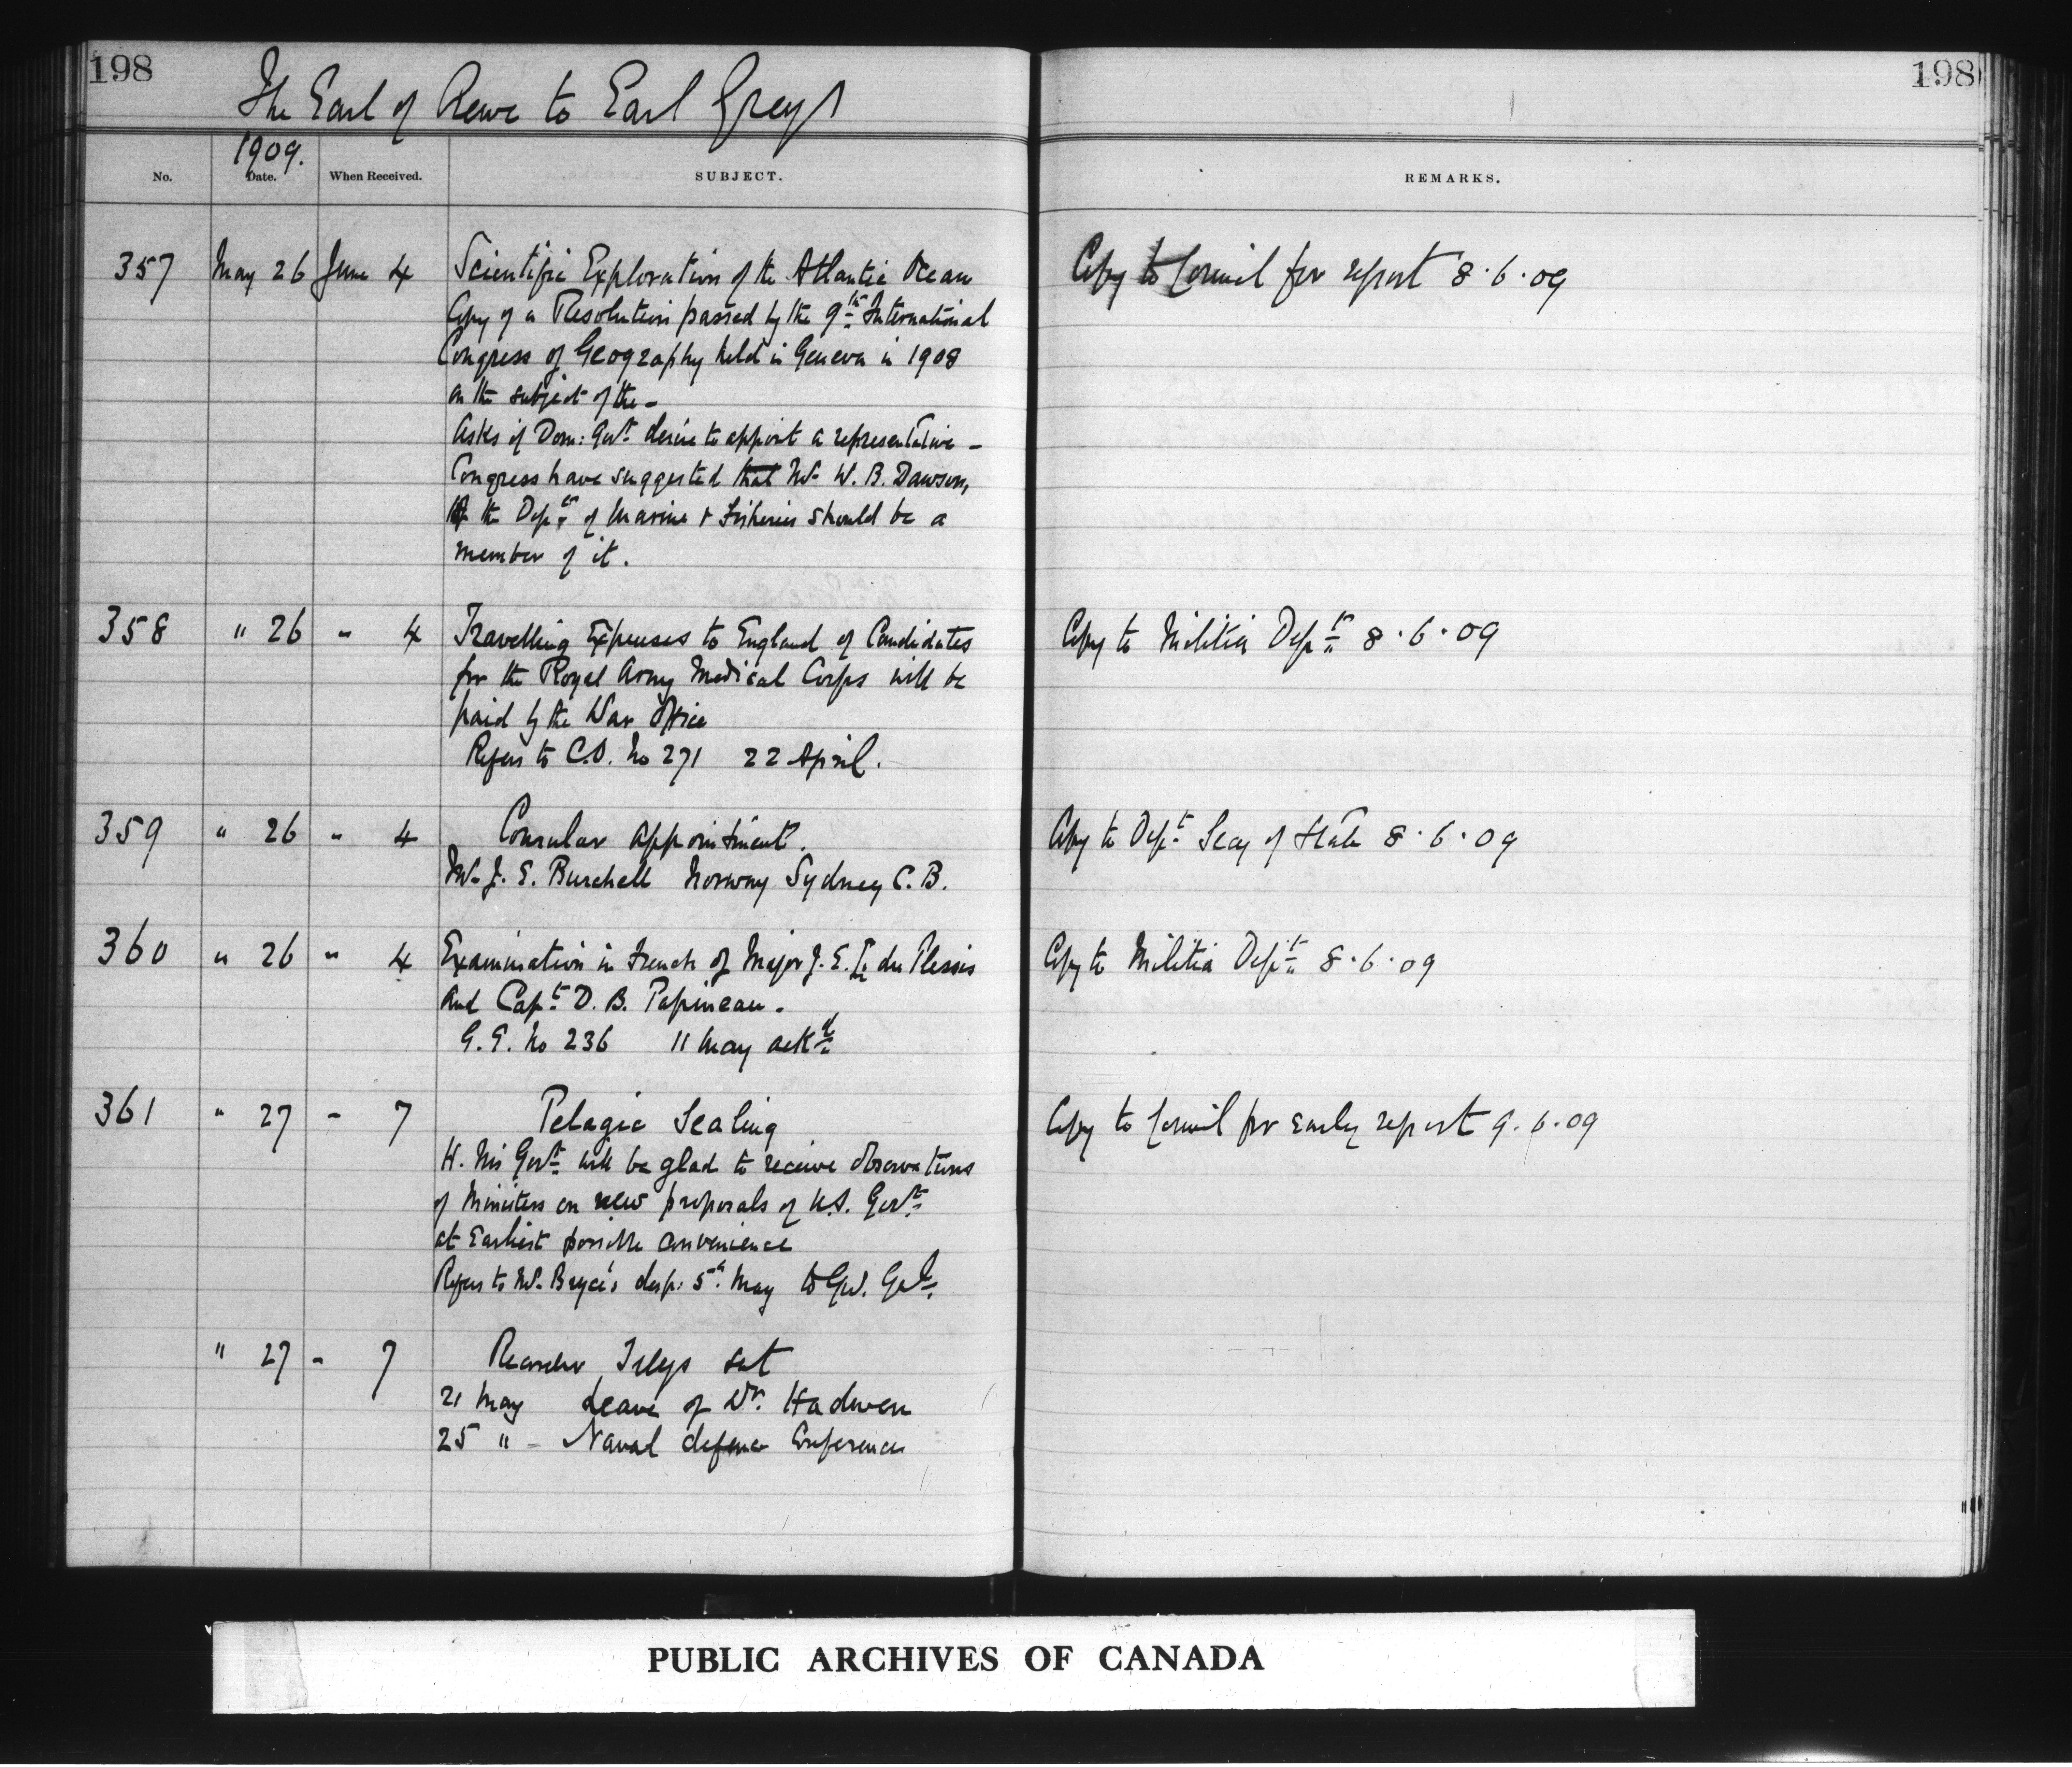 198
198
The Earl of Crewe to Earl Grey
1909.
No. Date. When Received. SUBJECT. REMARKS.
357 May 26 June 4 Scientific Exploration of the Atlantic Ocean Copy to Council for report 8.6.09
Copy of a Resolution passed by the 9th International
Congress of Geography held in Geneva in 1908
on the subject of the -
Asks if Dom: Govt desire to appoint a representative -
Congress have suggested that Mr W. B. Dawson,
of the Dept of Marine & Fisheries should be a
member of it.
358 " 26 " 4 Travelling Expenses to England of Candidates Copy to Militia Dept 8.6.09
for the Royal Army Medical Corps will be
paid by the War Office
Refers to C.O. No 271 22 April.
359 " 26 " 4 Consular Appointment. Copy to Dept Secy of State 8.6.09
Mr J. E. Burchell Norway Sydney C.B.
360 " 26 " 4 Examination in French of Major J. E. du Plessis Copy to Militia Dept 8.6.09
and Capt D. B. Papineau.
G.G. No 236 11 May ackd
361 " 27 " 7 Pelagic Sealing Copy to Council for early report 9.6.09
H. M's Govt will be glad to receive observations
of Ministers on new proposals of U.S. Govt
at earliest possible convenience
Refers to Mr Bryce's desp: 5th May to Gov. Genl.
" 27 - 7 Recorder Telegs sent
21 May Leave of Dr. Hadwen
25 " - Naval defence Conference
PUBLIC ARCHIVES OF CANADA